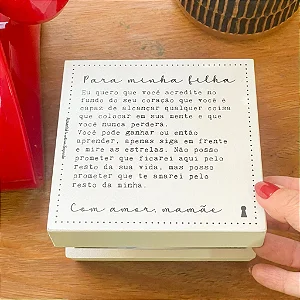 Para minha filha
Eu quero que você acredite no
fundo do seu coração que você é
capaz de alcançar qualquer coisa
que colocar em sua mente e que
você nunca perderá.
Você pode ganhar ou então
aprender, apenas siga em frente
e mire as estrelas. Não posso
prometer que ficarei aqui pelo
resto da sua vida, mas posso
prometer que te amarei pelo
resto da minha.
Com amor, mamãe